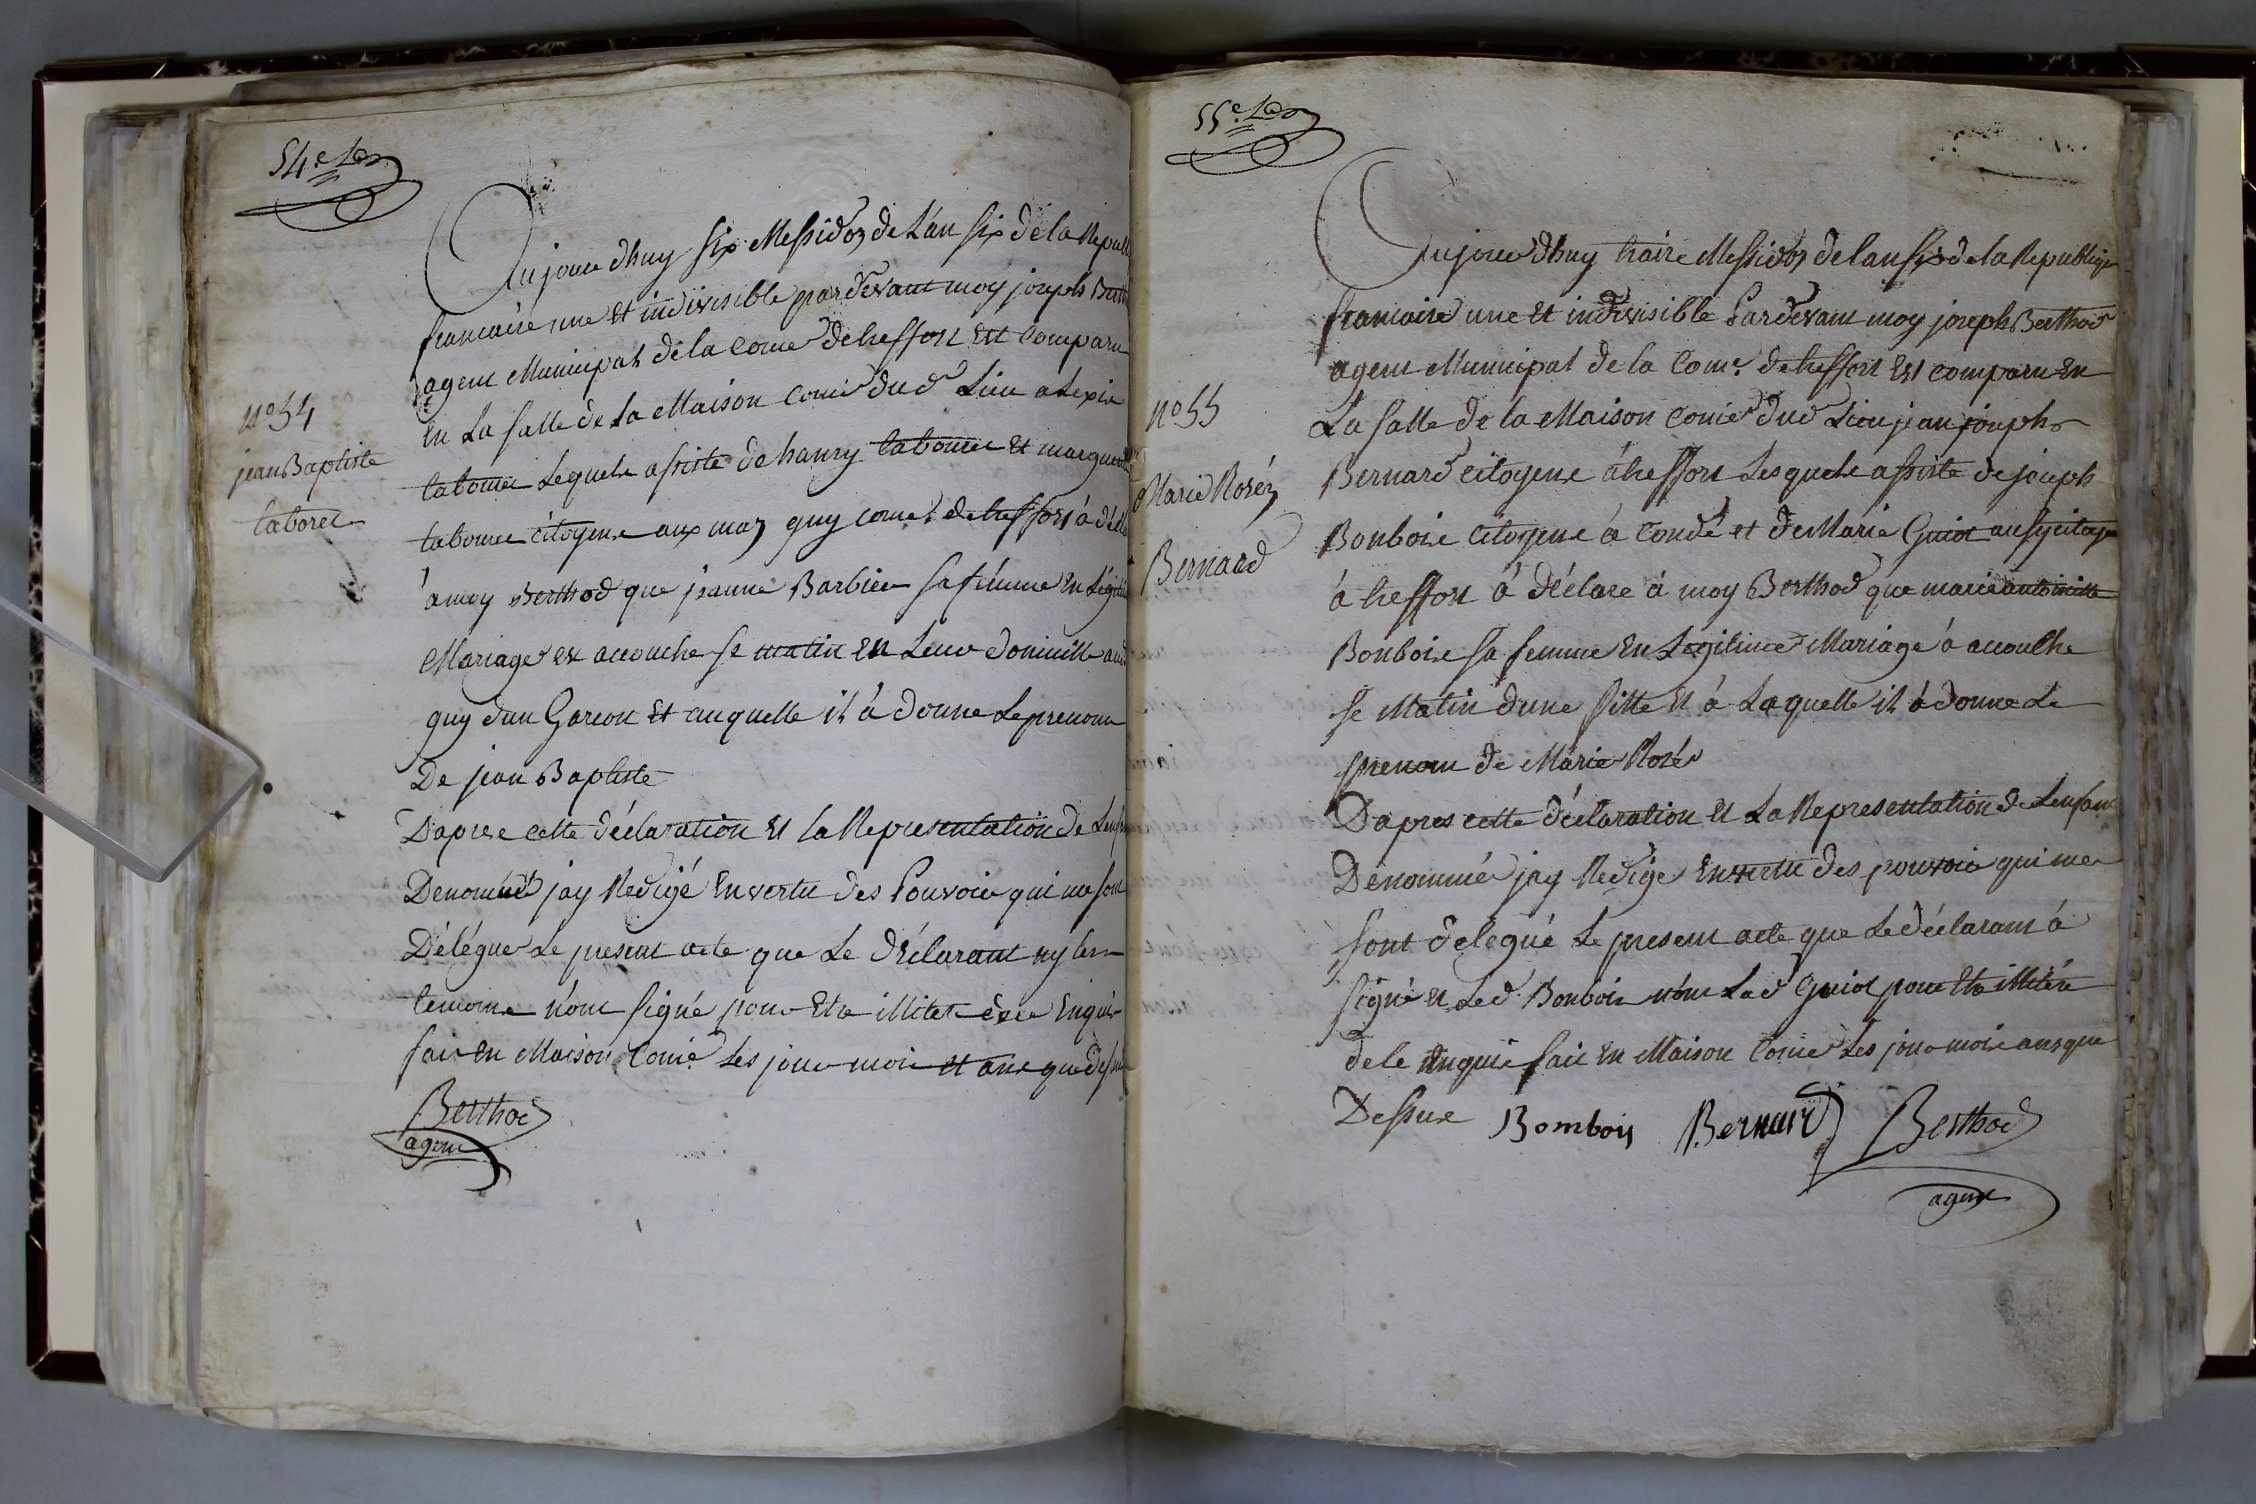 54e
Aujourdhuy Six Messidor de L'an Six de la Repu
francaise une et indivisible pardevant moy joseph
agent Municipal de la Come de heffort Est Comparu
N° 54
En La Salle de la Maison Come dud Lieu alexis
jean Baptiste
taborer
taborer Lequele assiste de hanry taborer et marguer
taborer citoyene aux guy come de heffort à
à moy Berthod que jeanne Barbier sa femme En
Mariage est accouche se matin En Leur domicille
guy dun Garcon Et auquelle il à donne Leprenom
De jean Baptiste
Daprese cette déclaration Et la Representation de
Denommé jay Redigé En vertu des Pouvoir qui me son
Délégue Le present acte que Le déclarant ny les
temoins n'ont signé pour Etre illiter de ce Enquis
fais En Maison Come Les jour mois et ans que
Berthod
agent
55e
Aujourdhuy traize Messidor de lan six de la Republique
francaise une et indivisible Pardevant moy joseph Berthod
agent Municipal de la Come de heffort Est comparu En
N° 55
La Salle de la Maison Come dud Lieu jean joseph
Marie Rosé
Bernard citoyene à heffort Lesquele assiste de joseph
Bernard
Bonboise citoyene à Condé et de Marie Guiot ausy
à heffort à déclare à moy Berthod que marie antoinette
Bonboise sa femme En Legitime Mariage à accouche
se Matin dune fille Et à Laquelle il à donne Le
prenom de Marie Rosé
Dapres cette déclaration et La Representation de Lenfant
Denommé jay Redige En vertu des pouvoir qui me
sont delegué Le present acte que Le déclarant à
signé et Led Bonbois non Lad Guiot pour Etre illitere
de le Enquis fait En Maison Come Les jour mois ans que
Dessus Bombois Bernard Berthod
agent